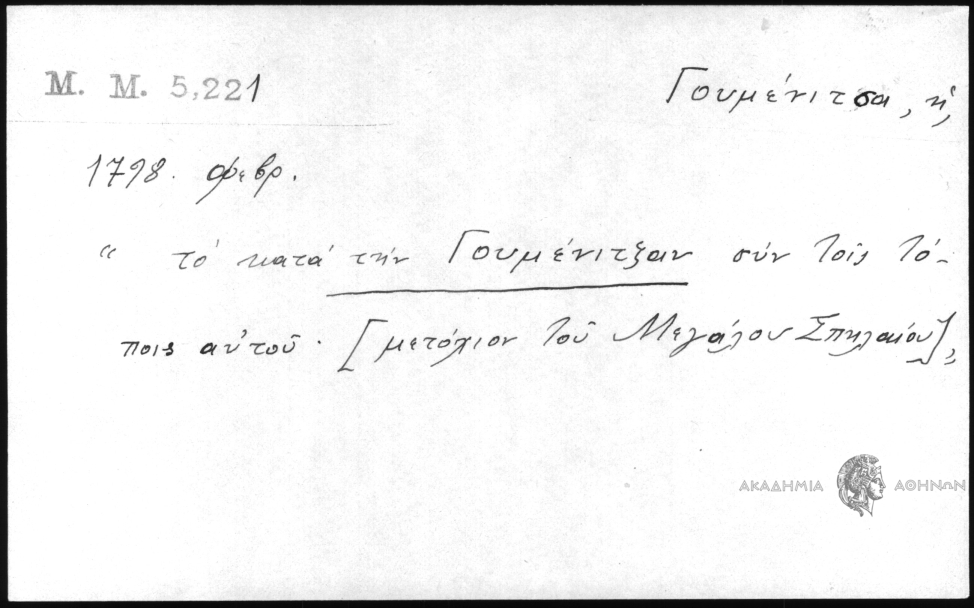 Μ. Μ. 5,221
Γουμένιτσα, ἡ,
1798. φεβρ.
“ τό κατά τήν Γουμένιτζαν σύν τοῖς τό-
ποις αὐτοῦ· [μετόχιον τοῦ Μεγάλου Σπηλαίου],,
ΑΚΑΔΗΜΙΑ ΑΘΗΝΩΝ